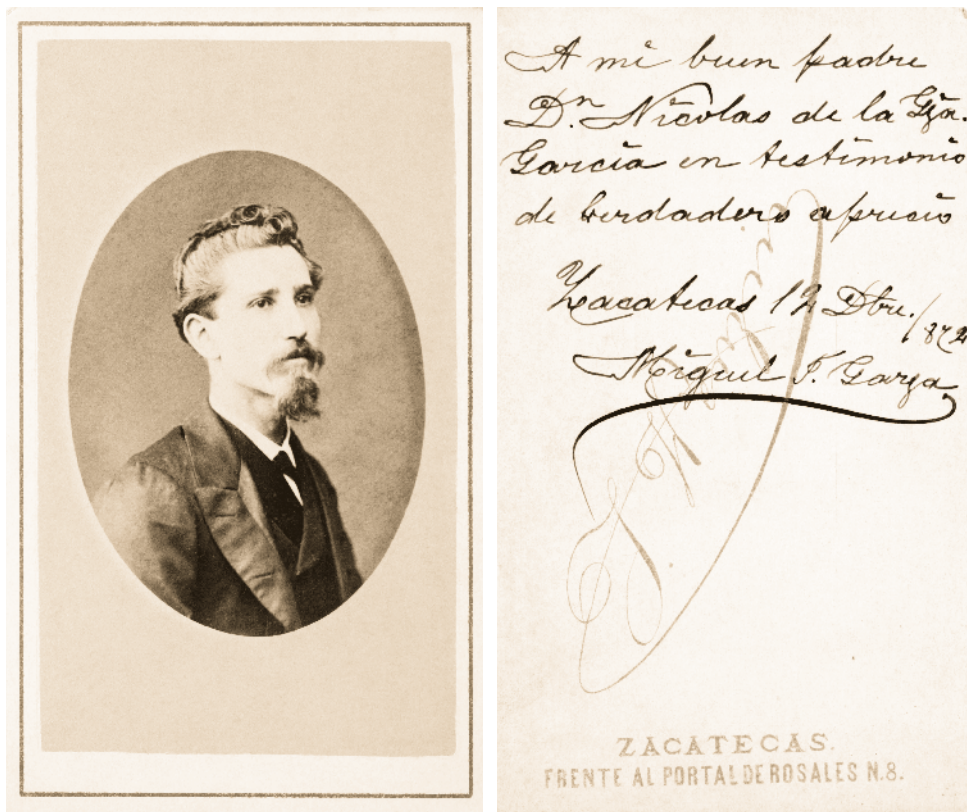 A mi buen padre
Dn. Nicolas de la Gza.
Garcia en testimonio
de berdadero aprecio
Zacatecas 12 Dbre./872
Miguel F. Garza
ZACATECAS.
FRENTE AL PORTAL DE ROSALES N.8.